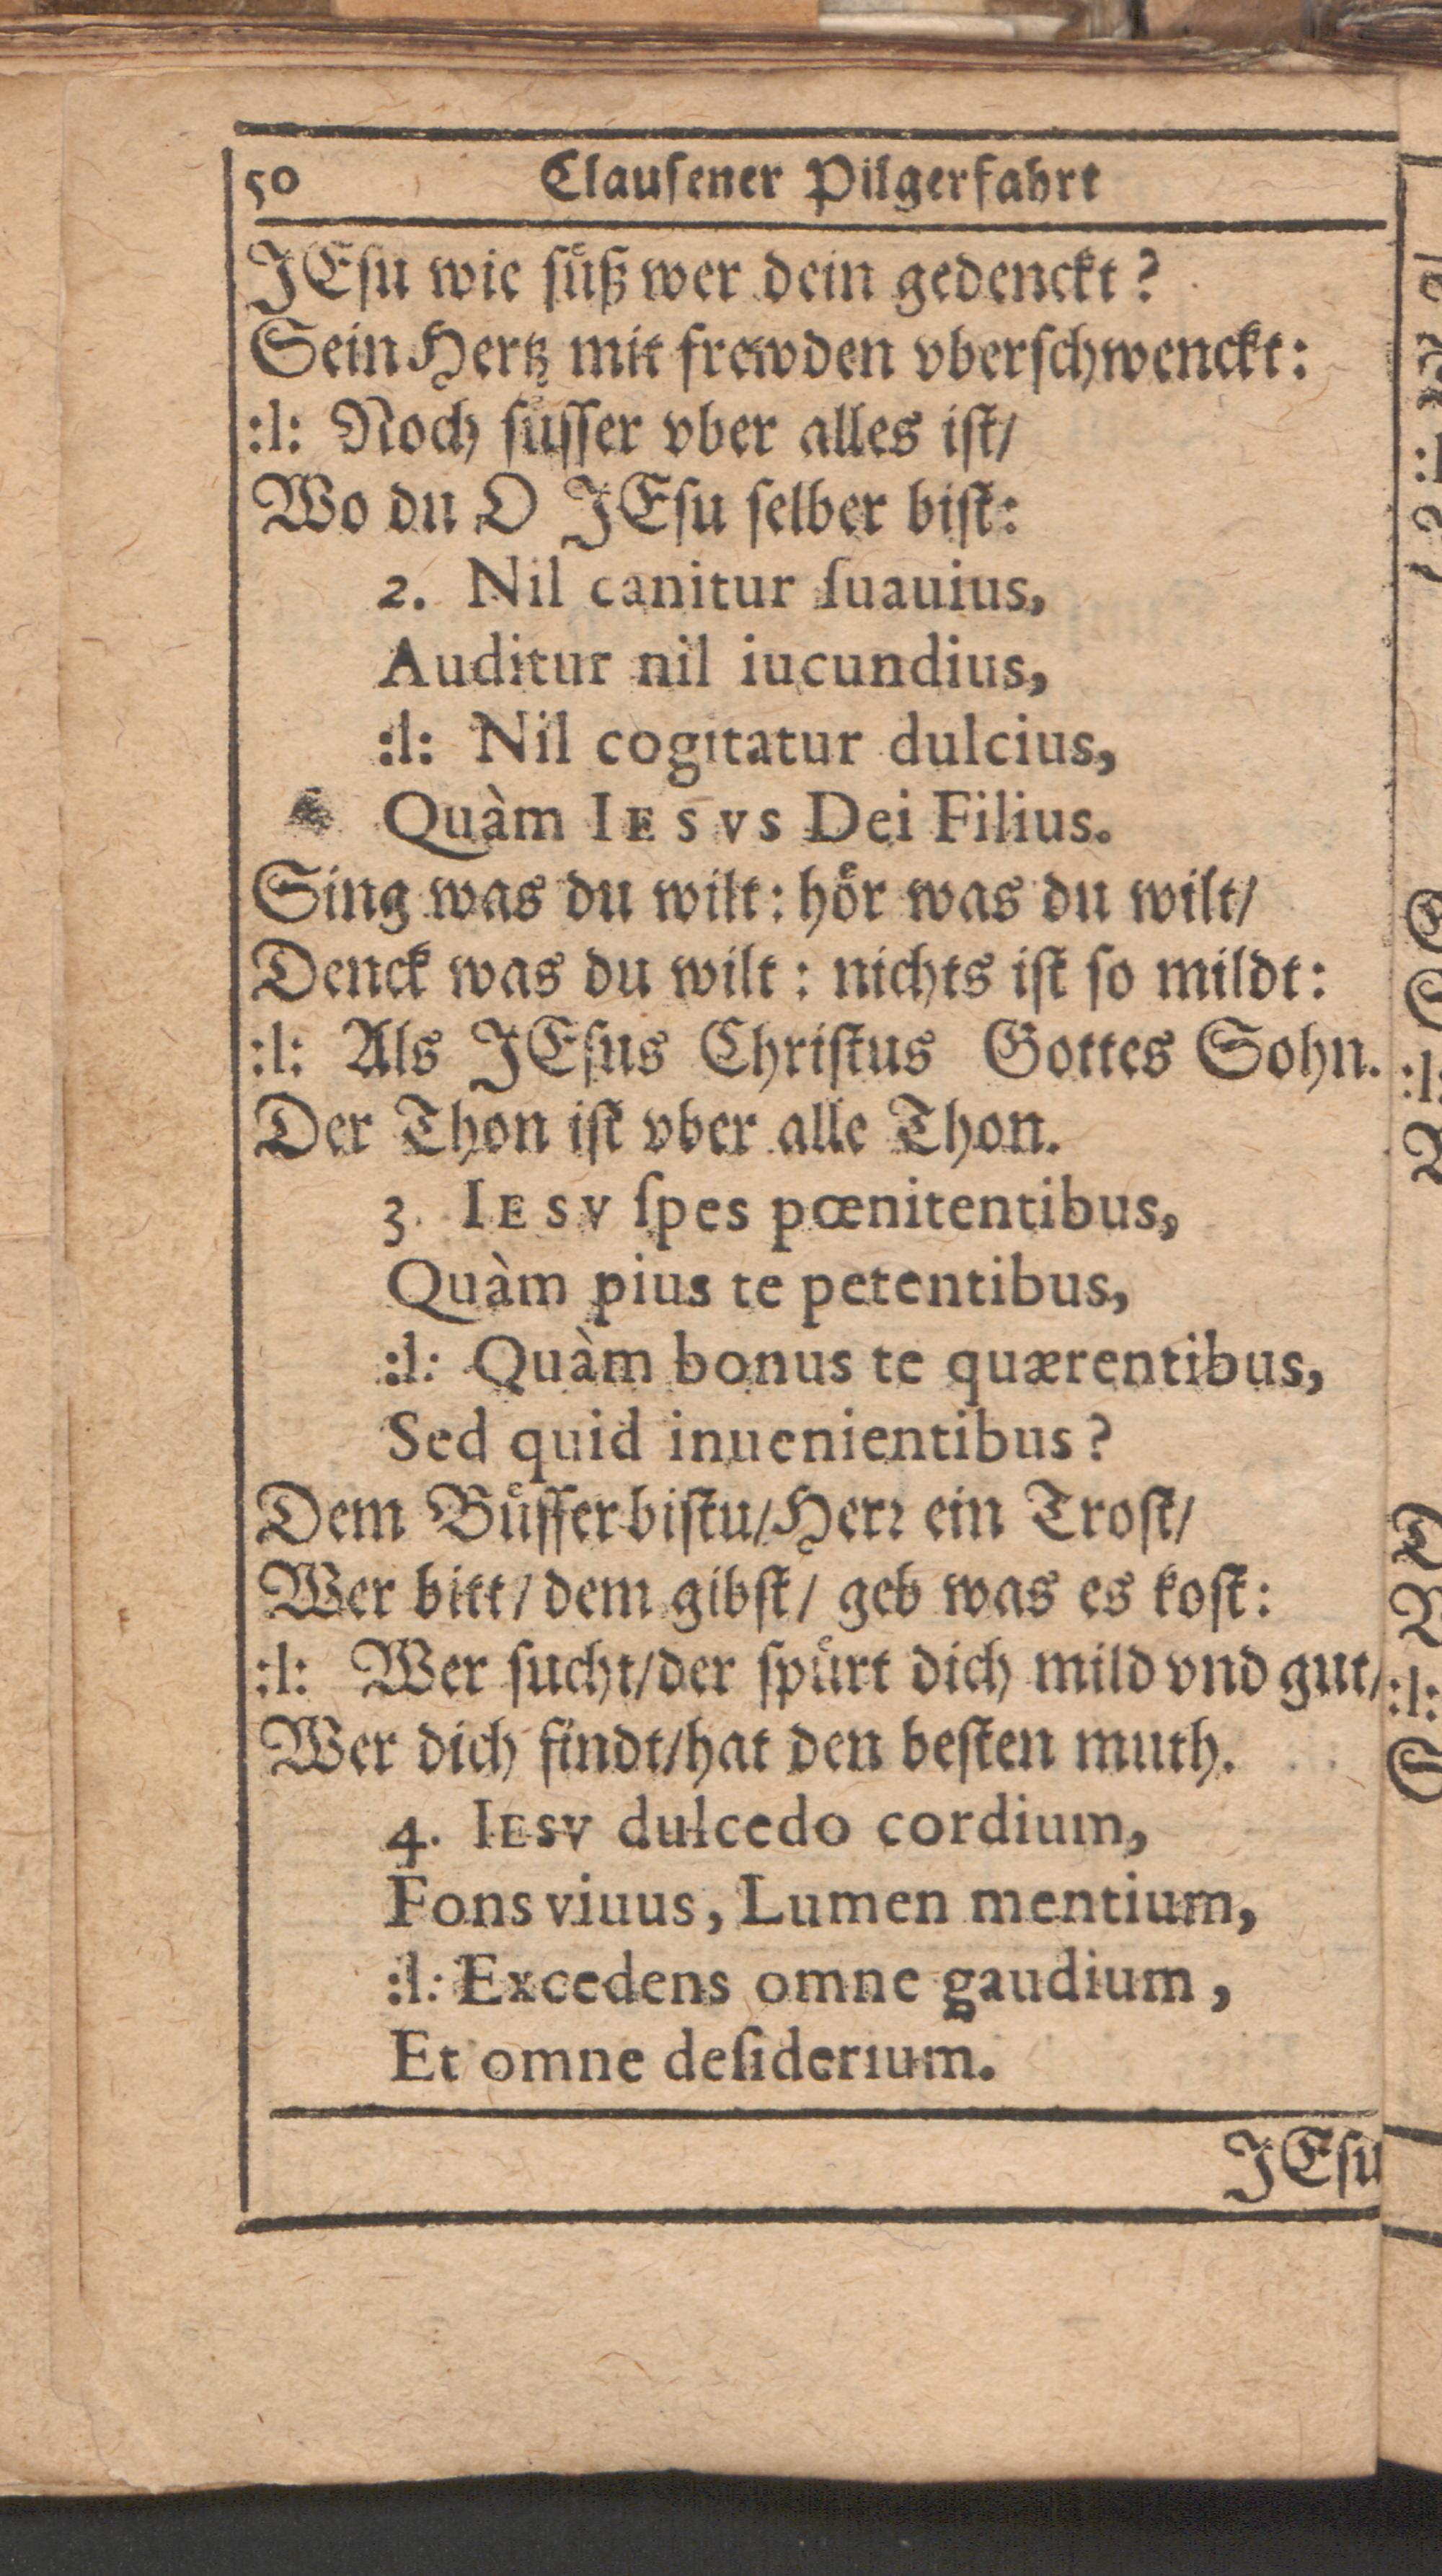 50 Clausener Pilgerfahrt
JEsu wie süß wer dein gedenckt?
Sein Hertz mit frewden vberschwenckt:
:l: Noch süsser vber alles ist/
Wo du O JEsu selber bist:
2. Nil canitur ſuauius,
Auditur nil iucundius,
:l: Nil cogitatur dulcius,
Quàm IESVS Dei Filius.
Sing was du wilt: hör was du wilt/
Denck was du wilt: nichts ist so mildt:
:l: Als JEsus Christus Gottes Sohn.
Der Thon ist vber alle Thon.
3. IESV ſpes pœnitentibus,
Quàm pius te petentibus,
:l: Quàm bonus te quærentibus,
Sed quid inuenientibus?
Dem Büsser bistu/Herr ein Trost/
Wer bitt/dem gibst/ geb was es kost:
:l: Wer sucht/der spürt dich mild vnd gut/
Wer dich findt/hat den besten muth.
4. IESV dulcedo cordium,
Fons viuus, Lumen mentium,
:l: Excedens omne gaudium,
Et omne deſiderium.
JEsu